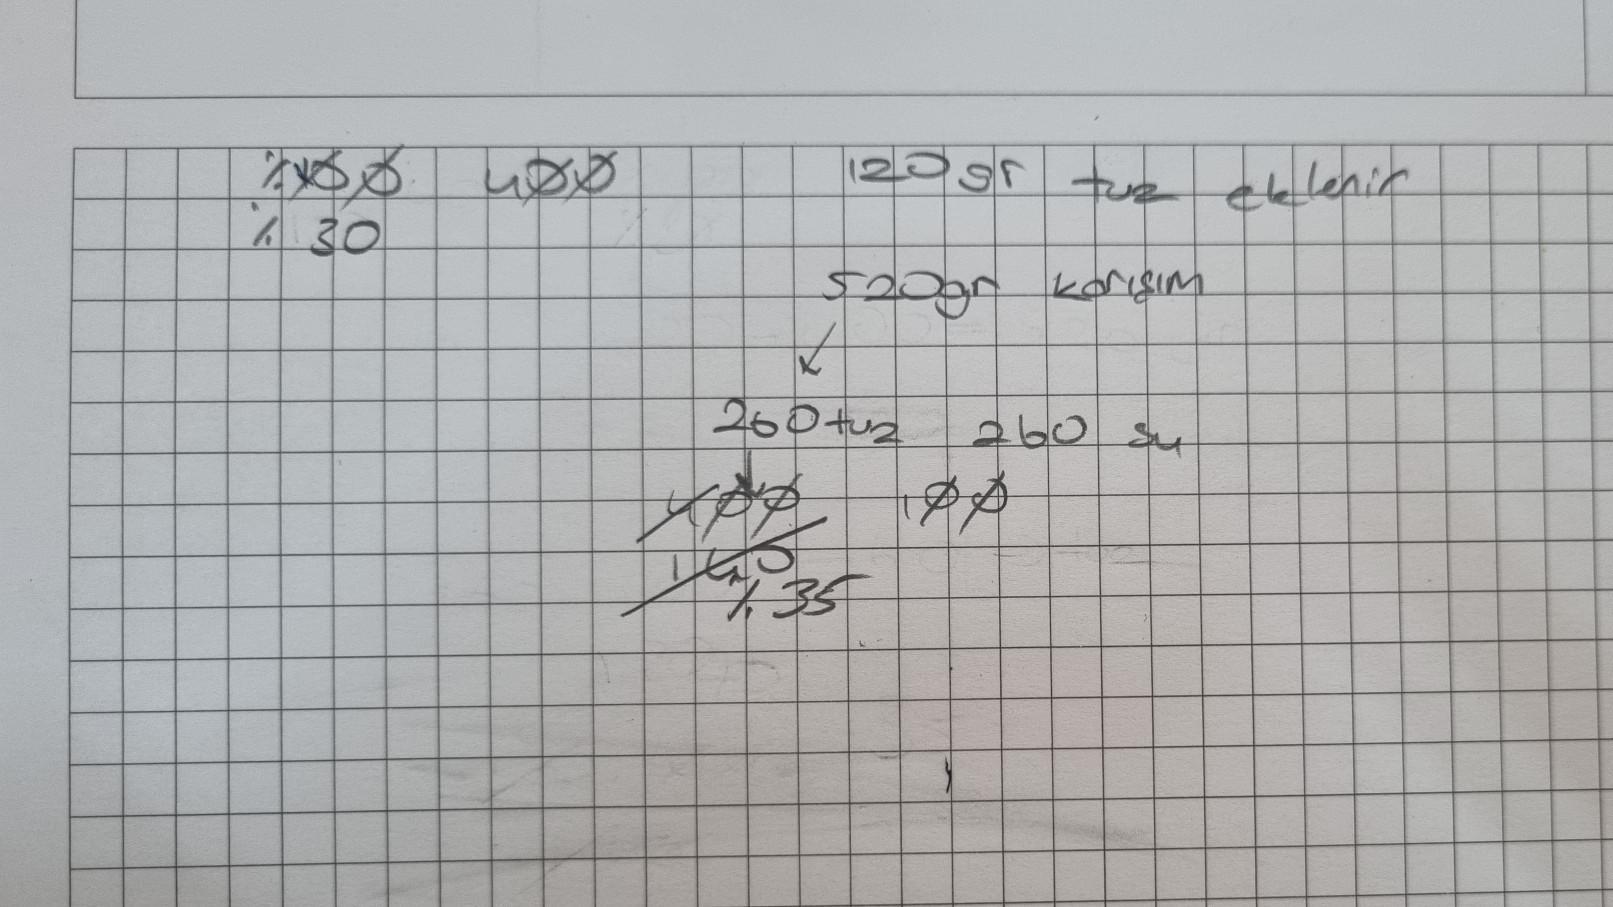 %100 400 120gr tuz eklenir
% 30
520gr karışım
260 tuz 260 su
400 100
140
% 35